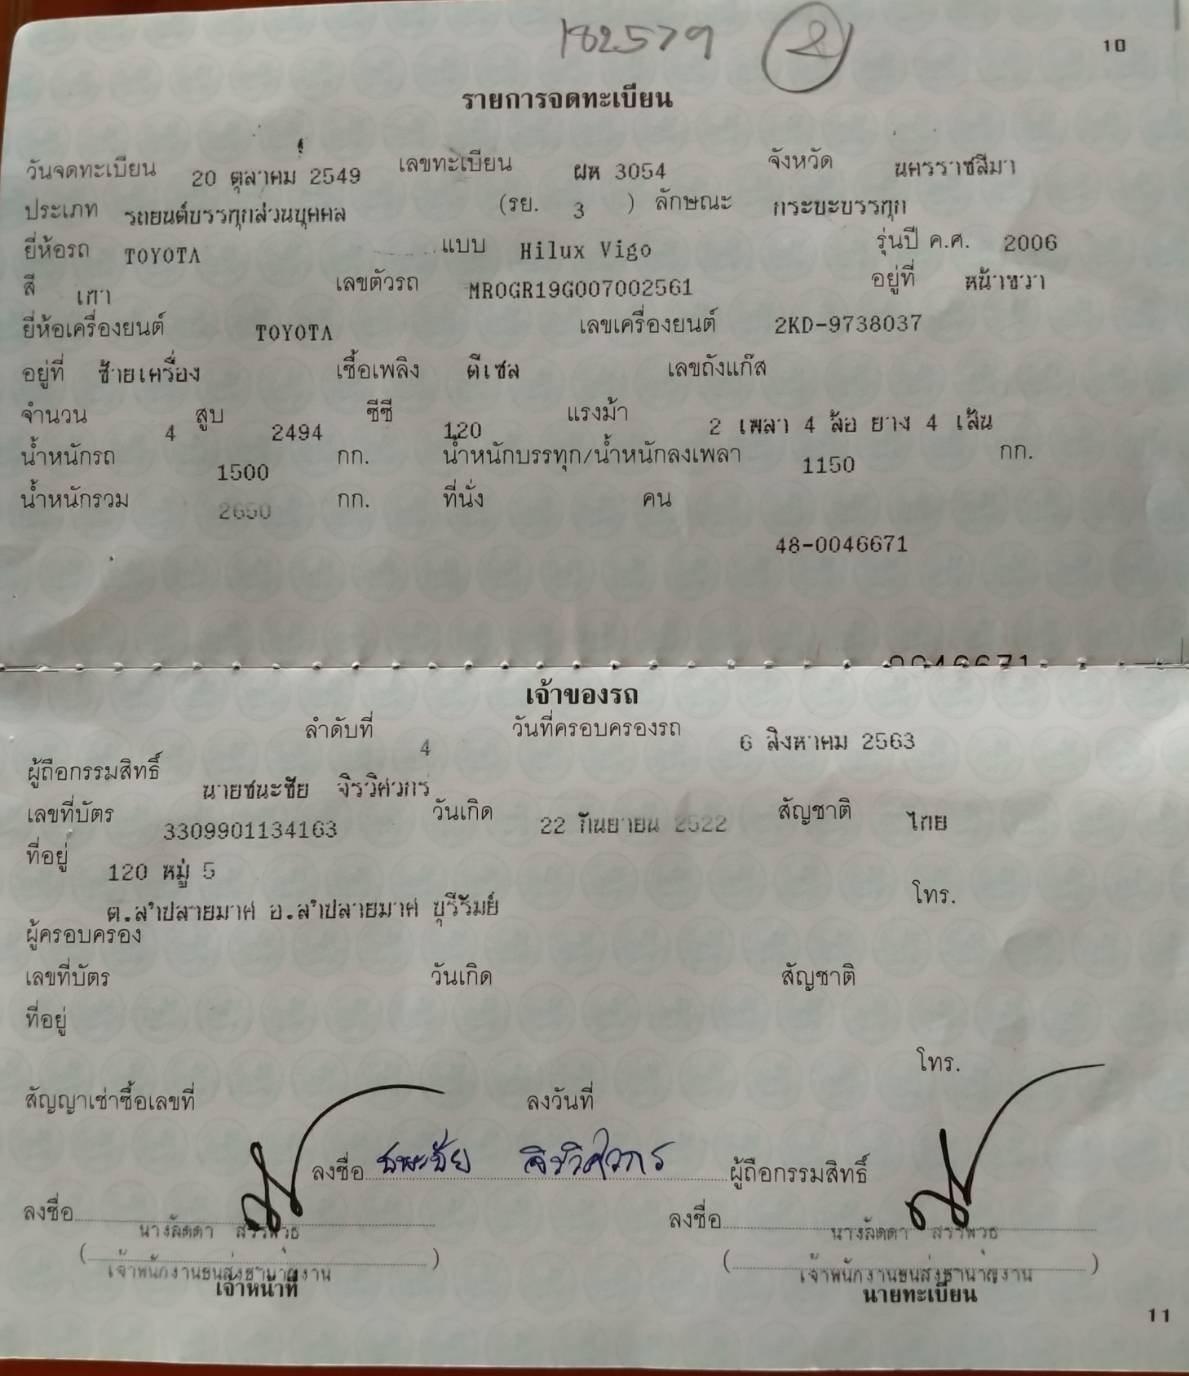 182579 2
10
รายการจดทะเบียน
วันจดทะเบียน 20 ตุลาคม 2549 เลขทะเบียน ผห 3054 จังหวัด นครราชสีมา
ประเภท รถยนต์บรรทุกส่วนบุคคล (รย. 3 ) ลักษณะ กระบะบรรทุก
ยี่ห้อรถ TOYOTA แบบ Hilux Vigo รุ่นปี ค.ศ. 2006
สี เทา เลขตัวรถ MR0GR19G007002561 อยู่ที่ หน้าขวา
ยี่ห้อเครื่องยนต์ TOYOTA เลขเครื่องยนต์ 2KD-9738037
อยู่ที่ ซ้ายเครื่อง เชื้อเพลิง ดีเซล เลขถังแก๊ส
จำนวน 4 สูบ 2494 ซีซี 120 แรงม้า 2 เพลา 4 ล้อ ยาง 4 เส้น
น้ำหนักรถ 1500 กก. น้ำหนักบรรทุก/น้ำหนักลงเพลา 1150 กก.
น้ำหนักรวม 2650 กก. ที่นั่ง คน
48-0046671
0046671
เจ้าของรถ
ลำดับที่ 4 วันที่ครอบครองรถ 6 สิงหาคม 2563
ผู้ถือกรรมสิทธิ์ นายชนะชัย จิรวิศวกร
เลขที่บัตร 3309901134163 วันเกิด 22 กันยายน 2522 สัญชาติ ไทย
ที่อยู่ 120 หมู่ 5
ต.ลำปลายมาศ อ.ลำปลายมาศ บุรีรัมย์ โทร.
ผู้ครอบครอง
เลขที่บัตร วันเกิด สัญชาติ
ที่อยู่
โทร.
สัญญาเช่าซื้อเลขที่ ลงวันที่
ลงชื่อ ชนะชัย จิรวิศวกร ผู้ถือกรรมสิทธิ์
ลงชื่อ ลงชื่อ
( นางลัดดา สรรพวุธ ) ( นางลัดดา สรรพวุธ )
เจ้าพนักงานขนส่งชำนาญงาน เจ้าพนักงานขนส่งชำนาญงาน
เจ้าหน้าที่ นายทะเบียน
11